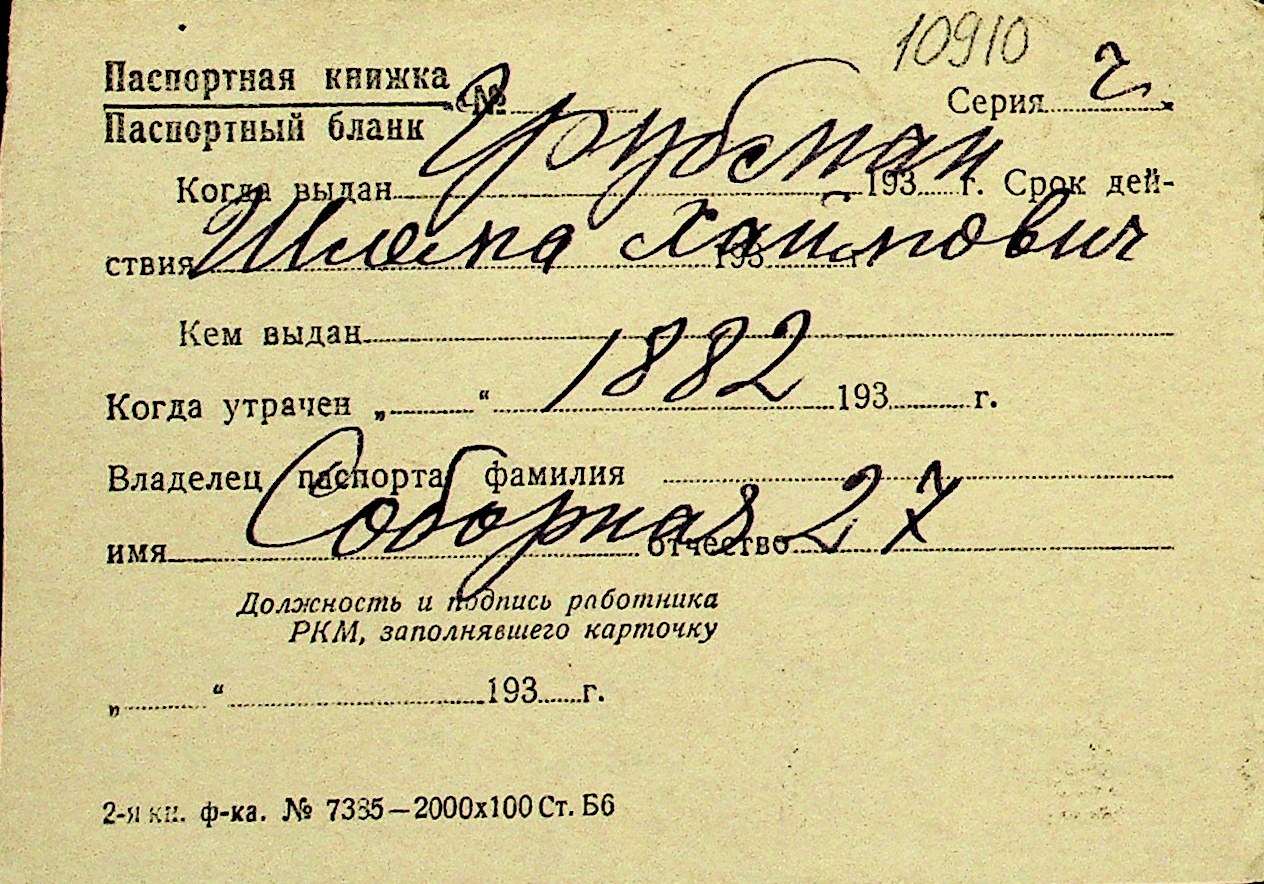 10910
Паспортная книжка
№ Серия г.
Паспортный бланк
Грубман
Когда выдан 193 г. Срок дей-
Шлема Хаймович
ствия 193 г.
Кем выдан
1882
Когда утрачен „ “ 193 г.
Владелец паспорта фамилия
Соборная 27
имя отчество
Должность и подпись работника
РКМ, заполнявшего карточку
„ “ 193 г.
2-я кн. ф-ка. № 7385—2000х100 Ст. Б6